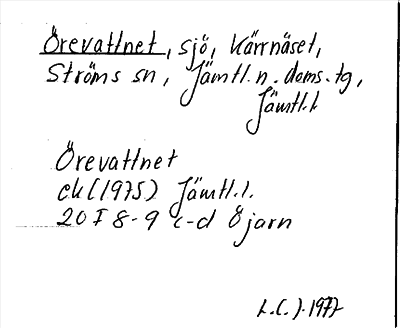 Örevattnet, sjö, Kärrnäset,
Ströms sn, Jämtl. n. doms. tg,
Jämtl. l.
Örevattnet
ek (1975) Jämtl. l.
20 F 8-9 c-d Öjarn
L.C.J. 1977